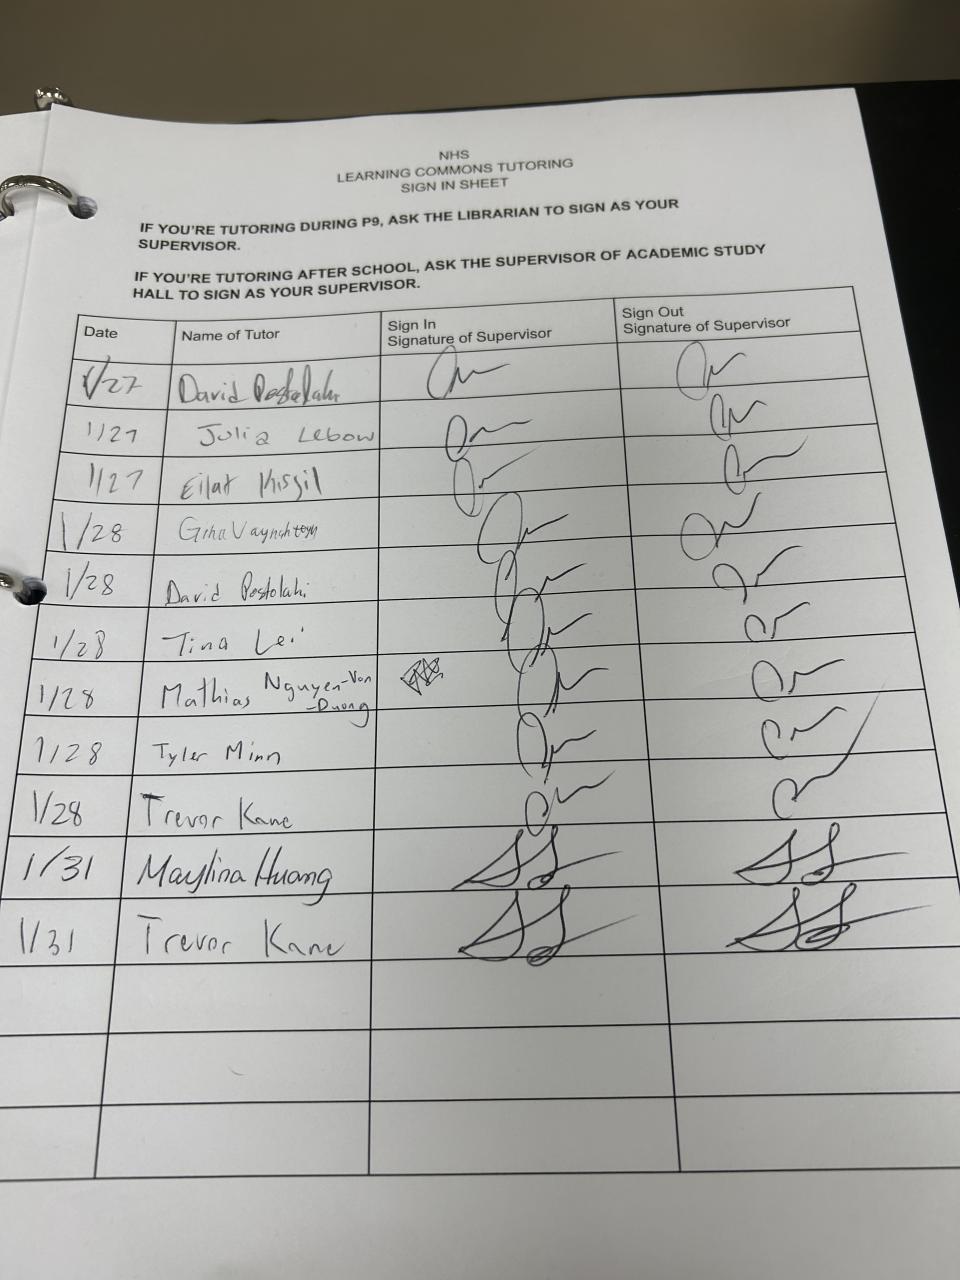 NHS
LEARNING COMMONS TUTORING
SIGN IN SHEET
IF YOU'RE TUTORING DURING P9, ASK THE LIBRARIAN TO SIGN AS YOUR
SUPERVISOR.
IF YOU'RE TUTORING AFTER SCHOOL, ASK THE SUPERVISOR OF ACADEMIC STUDY
HALL TO SIGN AS YOUR SUPERVISOR.
Date Name of Tutor Sign In Signature of Supervisor Sign Out Signature of Supervisor
1/27 David Postolahi
1/27 Julia Lebow
1/27 Eilat Kisgil
1/28
1/28 David Postolahi
1/28 Tina Lei
1/28 Mathias Nguyen-Van
-Duong
1/28 Tyler Minn
1/28 Trevor Kane
1/31 Maylina Huang
1/31 Trevor Kane